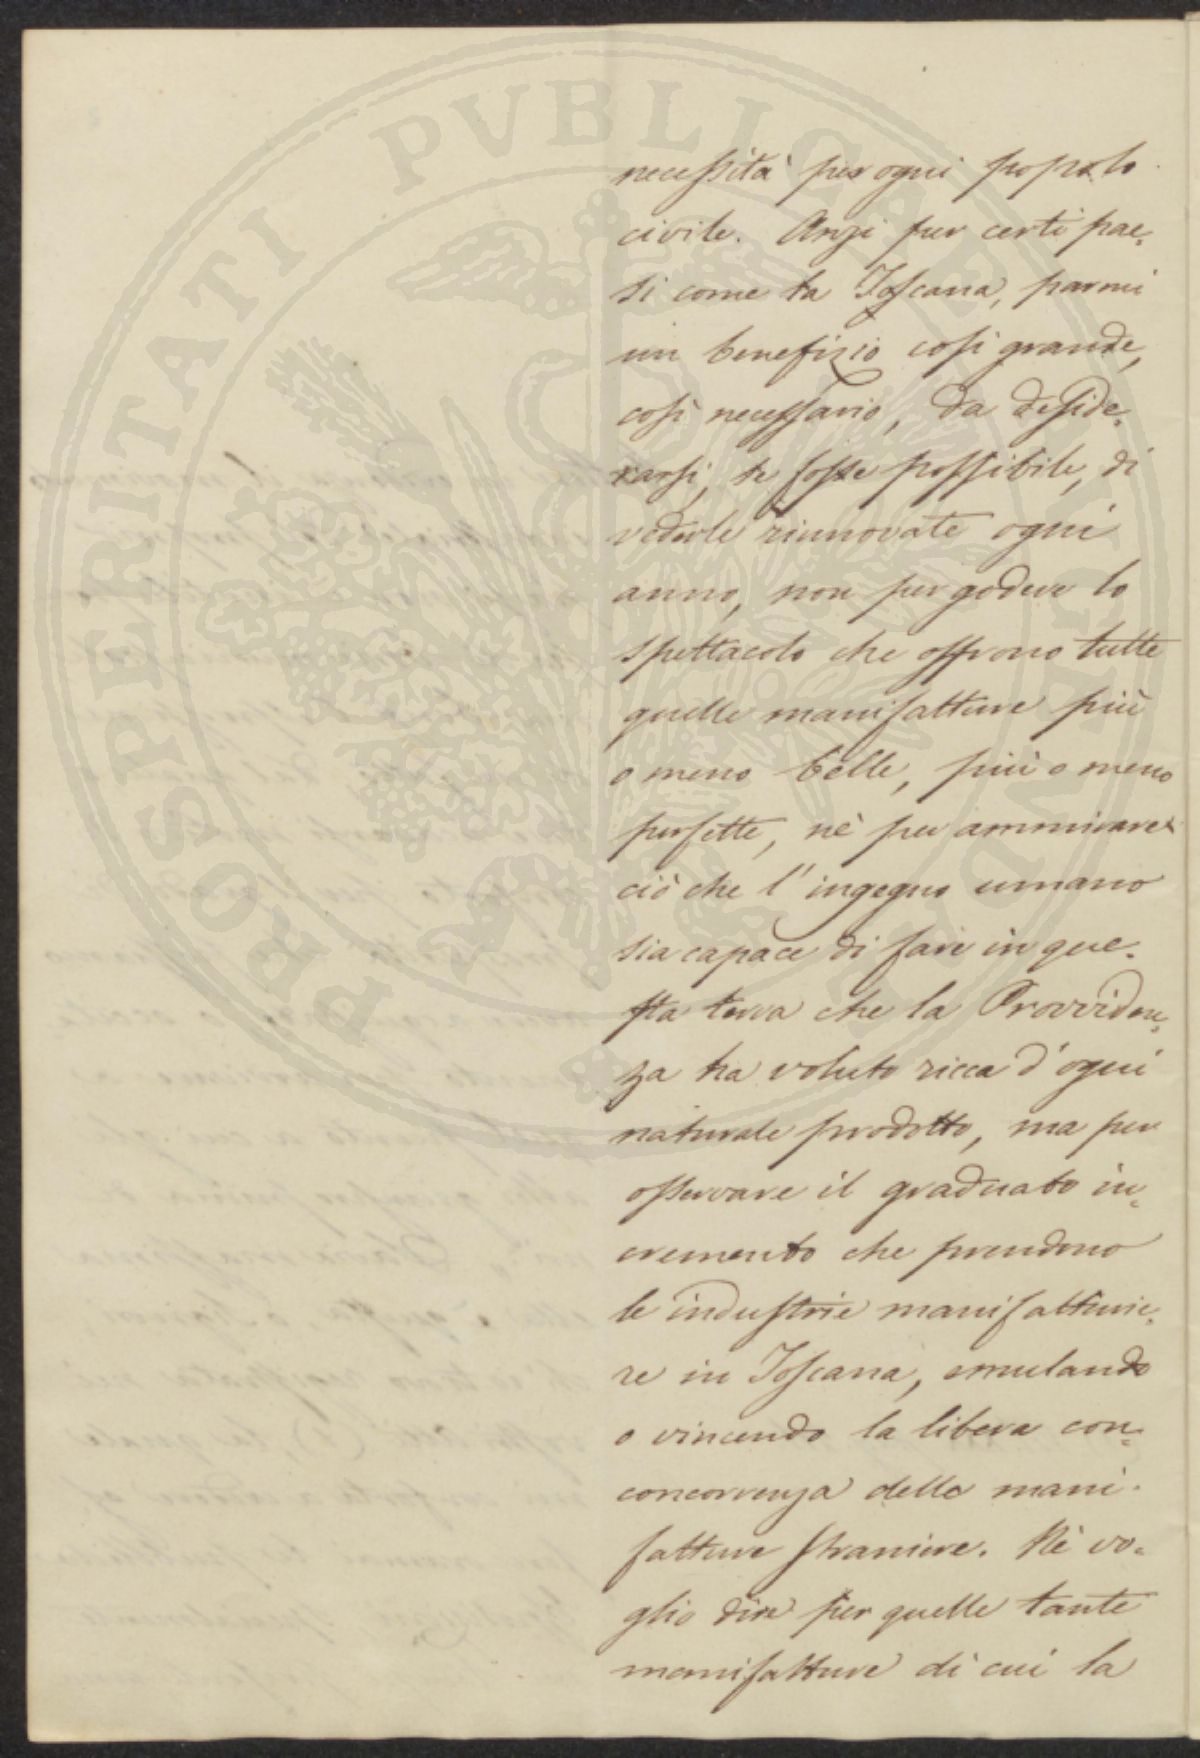 PROSPERITATI PVBLICAE AVGENDAE
necessità per ogni popolo
civile. Anzi per certi pae,
si come la Toscana, parmi
un benefizio così grande,
così necessario, da deside,
rarsi, se fosse possibile, di
vederle rinnovate ogni
anno, non per godere lo
spettacolo che offrono tutte
quelle manifatture più
o meno belle, più o meno
perfette, nè per ammirare
ciò che l'ingegno umano
sia capace di fare in que-
sta terra che la Provviden,
za ha voluto ricca d'ogni
naturale prodotto, ma per
osservare il graduato in,
cremento che prendono
le industrie manifatturie,
re in Toscana, emulando
o vincendo la libera con,
concorrenza delle mani-
fatture straniere. Nè vo-
glio dire per quelle tante
manifatture di cui la